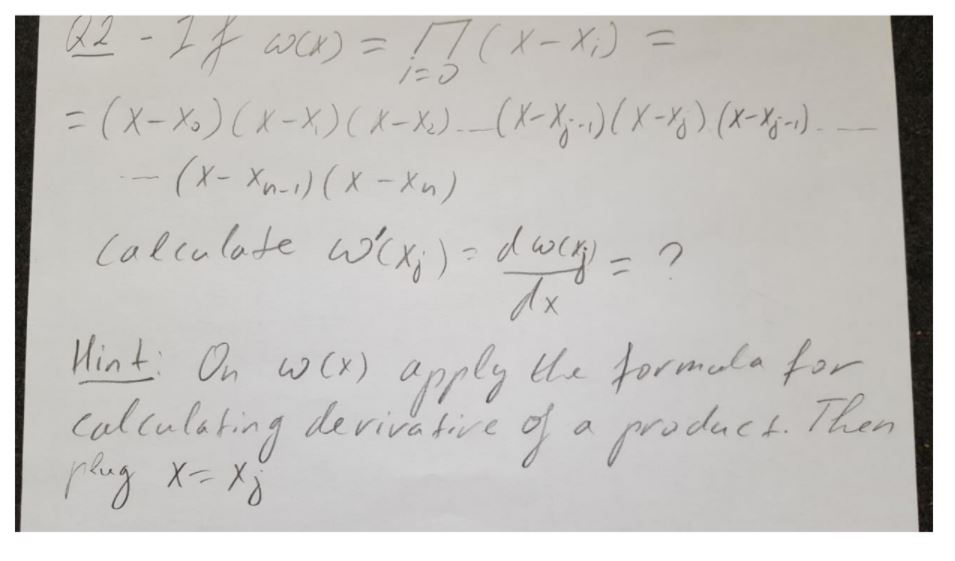 Q2 - If ω(x) = ∏ (x-xᵢ) =
i=0
= (x-x₀)(x-x₁)(x-x₂)...(x-xⱼ₋₁)(x-xⱼ)(x-xⱼ₋₁)....
... (x-xₙ₋₁)(x-xₙ)
Calculate ω'(xⱼ) = dω(xⱼ)/dx = ?
Hint: On ω(x) apply the formula for
calculating derivative of a product. Then
plug x=xⱼ